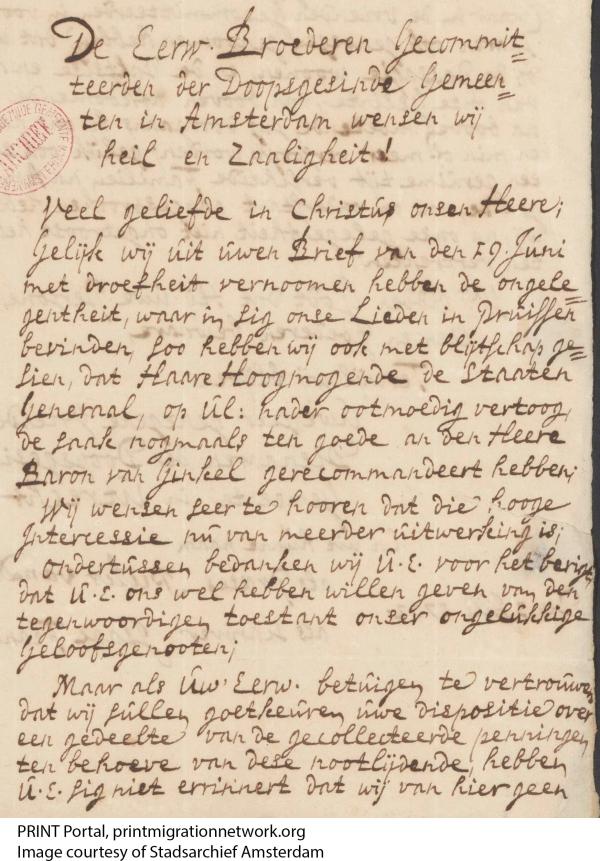 De Eerw. Broederen Gecommit=
teerden der Doopsgesinde Gemeen=
ten in Amsterdam wensen wij
heil en Zaaligheit!
Veel geliefde in Christus onsen Heere;
Gelijk wij uit uwen Brief van den 19. Juni
met droefheit vernoomen hebben de ongele=
gentheit, waar in sig onse Lieden in Pruissen
bevinden, soo hebben wij ook met blijtschap ge=
sien, dat Haare Hoogmogende de Staaten
Generaal, op Ul: nader ootmoedig vertoog,
de saak nogmaals ten goede an den Heere
Baron van Ginkel gerecommandeert hebben;
Wij wensen seer te hooren dat die hooge
Intercessie nu van meerder uitwerking is;
ondertussen bedanken wij U.E. voor het berigt
dat U.E. ons wel hebben willen geven van den
tegenwoordigen toestant onser ongelukkige
Geloofsgenooten;
Maar als Uw Eerw. betuigen te vertrouwen
dat wij sullen goetkeuren uwe dispositie over
een gedeelte van de gecollecteerde penningen
ten behoeve van dese nootlijdende, hebben
U.E. sig niet errinnert dat wij van hier geen
PRINT Portal, printmigrationnetwork.org
Image courtesy of Stadsarchief Amsterdam